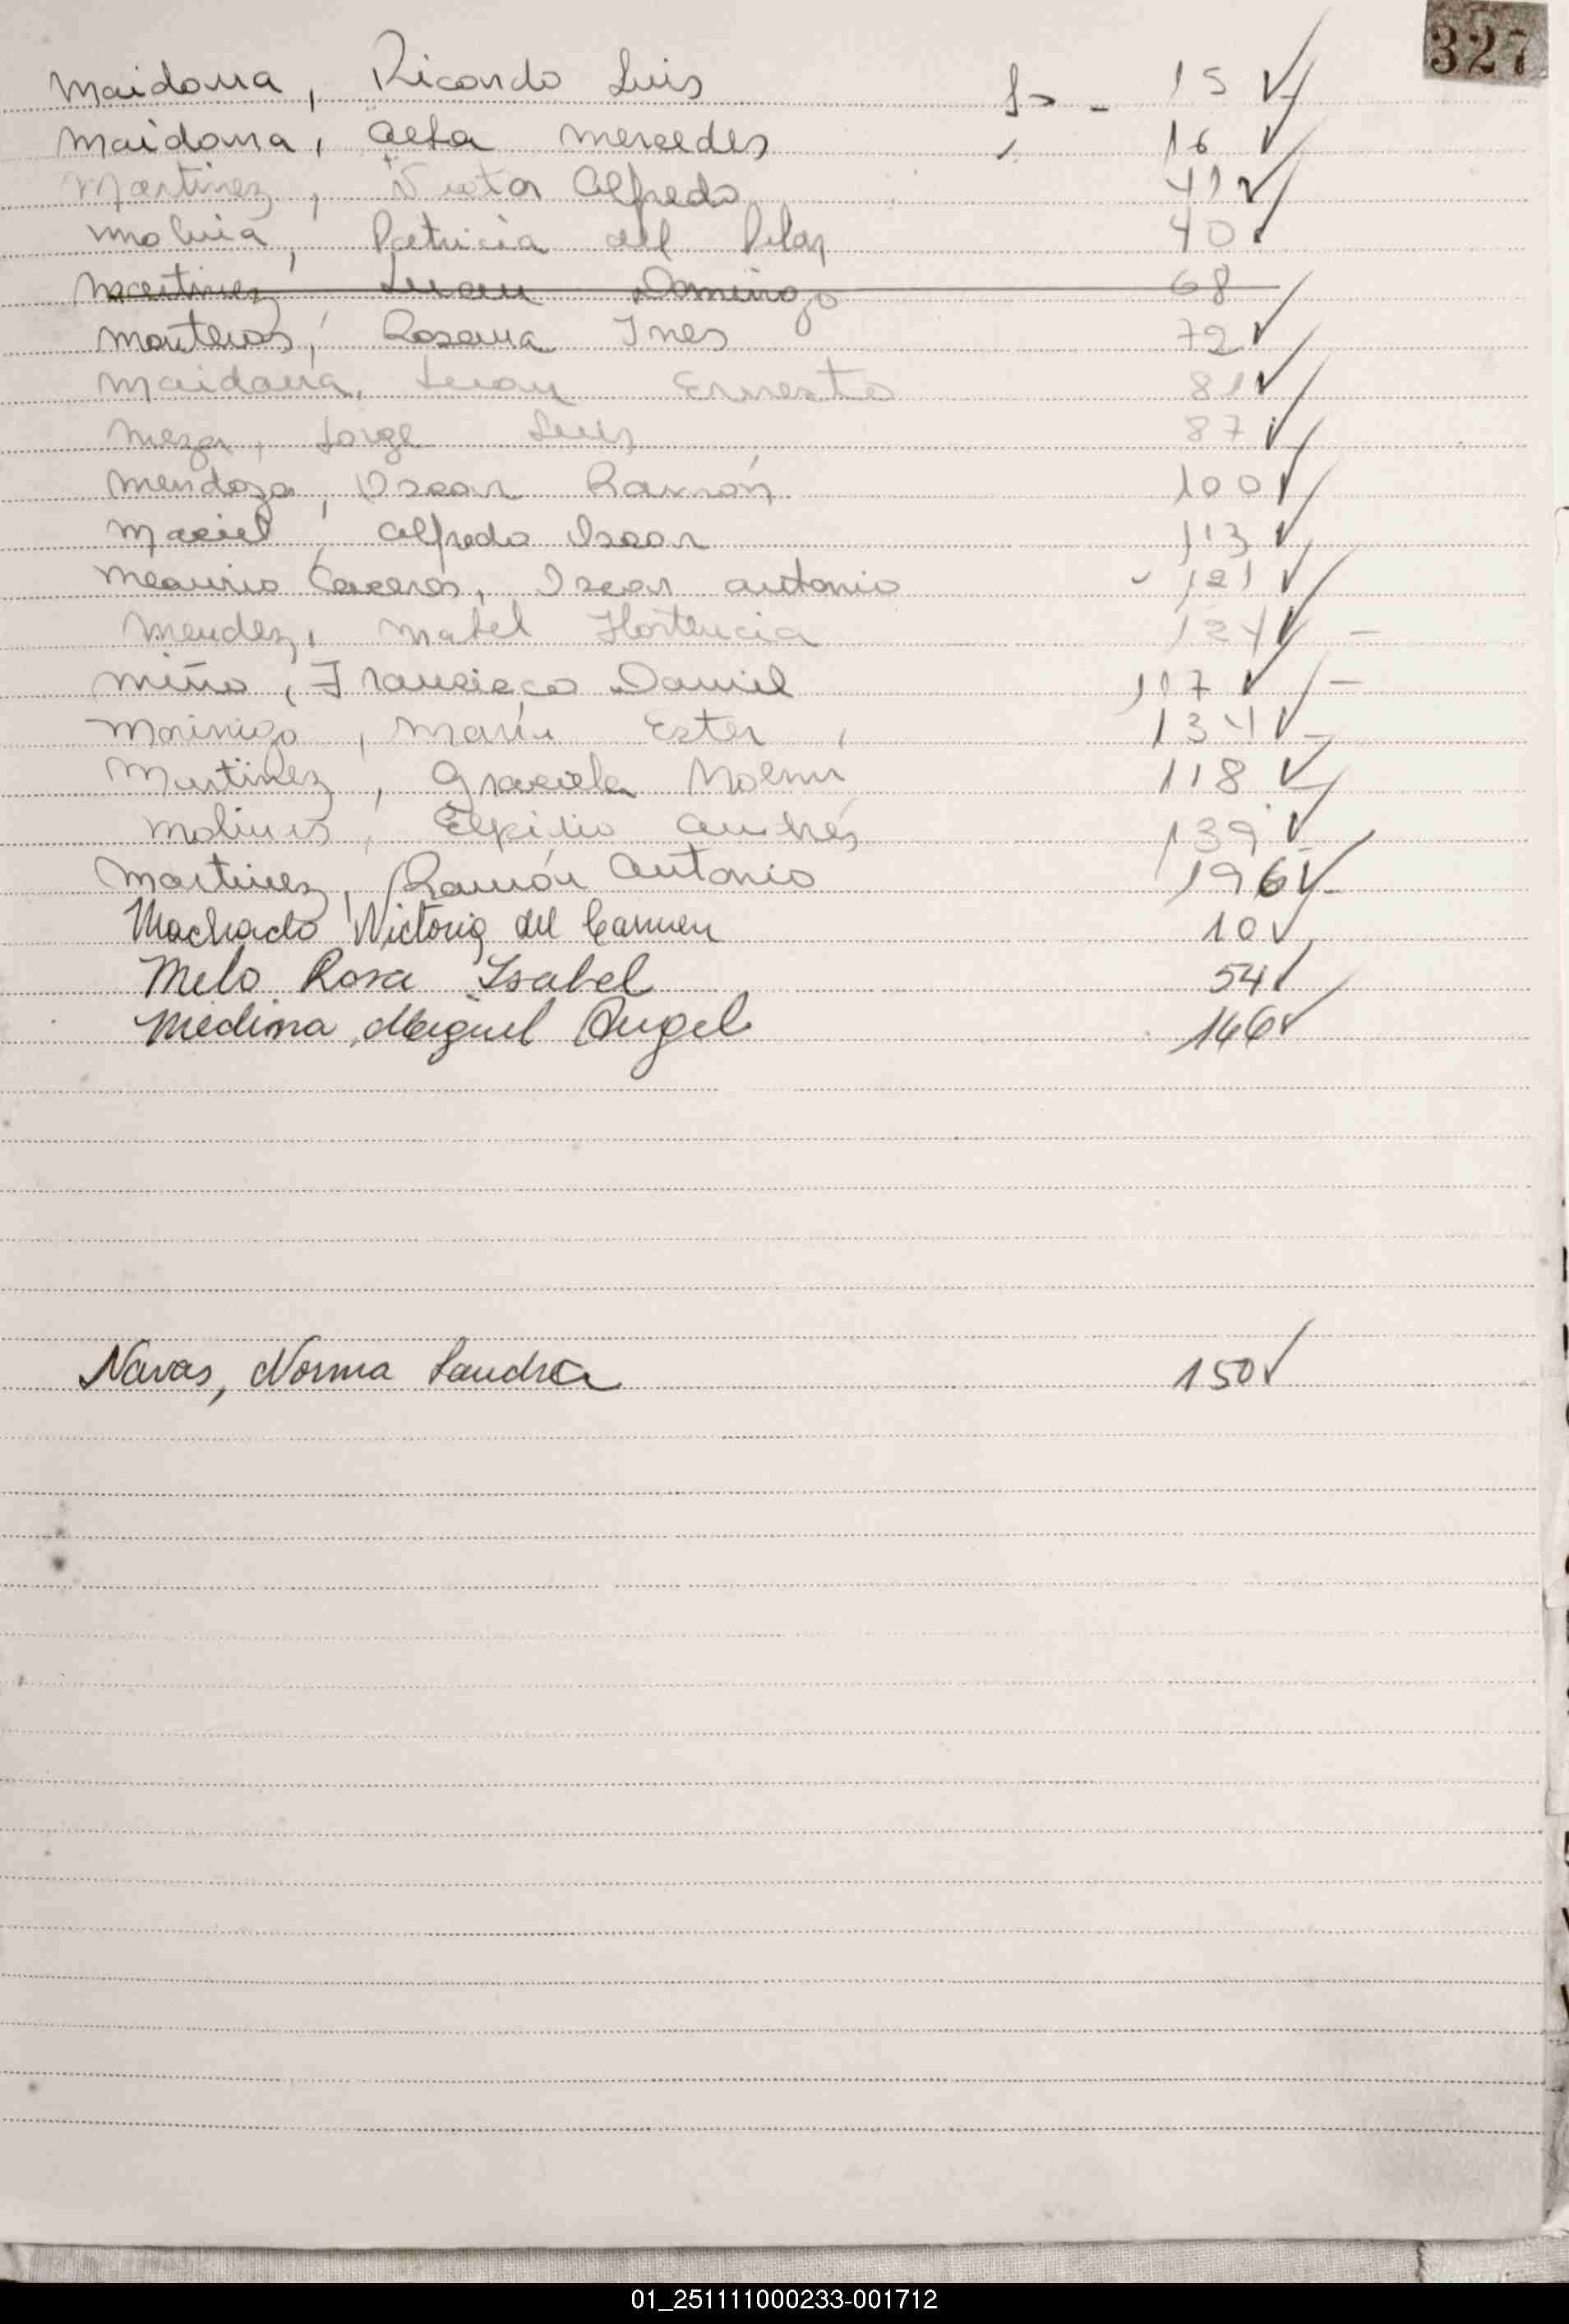 327
Maidana, Ricardo Luis Fo - 15 ✓
Maidana, Alba Mercedes " 16 ✓
Martinez, Victor Alfredo 41 ✓
Molina, Patricia del Pilar 40 ✓
Martinez Juan Domingo 68
Monteros, Rosana Ines 72 ✓
Maidana, Juan Ernesto 81 ✓
Meza, Jorge Luis 87 ✓
Mendoza, Oscar Ramón 100 ✓
Maciel, Alfredo Oscar 113 ✓
Meaurio Caceres, Oscar Antonio 121 ✓
Mendez, Mabel Hortencia 124 ✓ -
Miño, Francisco Daniel 117 ✓ -
Morinigo, María Ester, 134 ✓
Martinez, Graciela Noemi 118 ✓
Molinas, Elpidio Andrés 139 ✓
Martinez, Ramón Antonio 196 ✓
Machado Victoria del Carmen 10 ✓
Melo Rosa Isabel 54 ✓
Medina, Miguel Angel 146 ✓
Navas, Norma Sandra 150 ✓
01_251111000233-001712